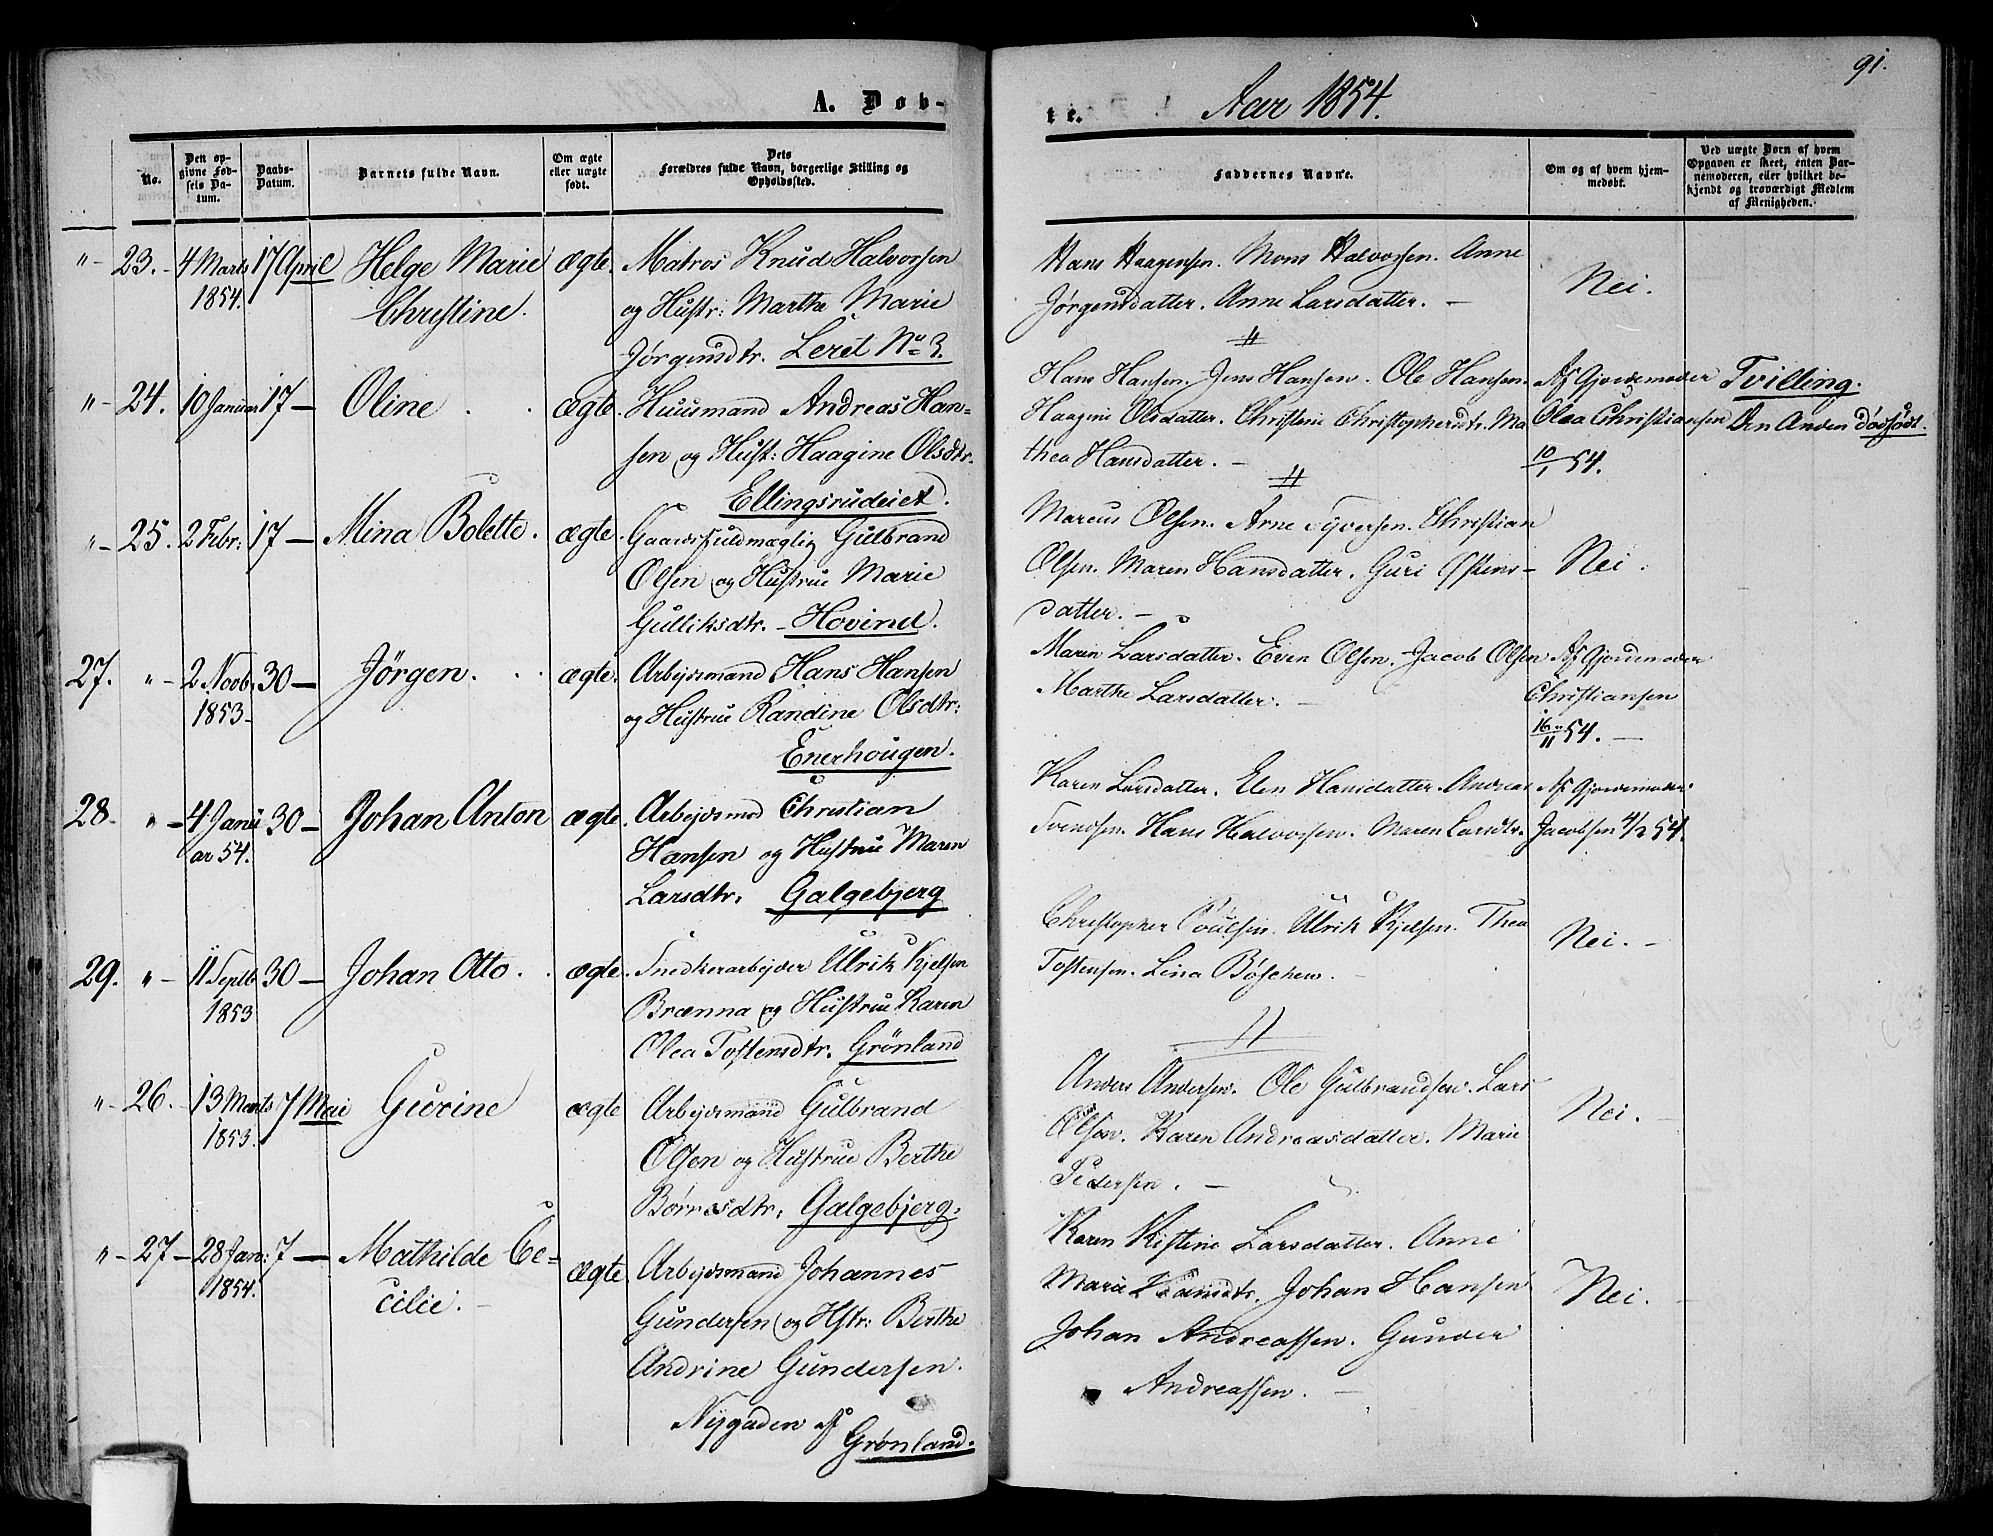 A. Døb-
No.
Den op-
givne Fød-
sels Da-
tum.
Daabs-
Datum.
Barnets fulde Navn.
Om ægte
eller uægte
født.
Dets
Forældres fulde Navn, borgerlige Stilling og
Opholdssted.
"- 23. - 4 Marts 17 April Helge Marie ægte. Matros Knud Halvorsen
1854. Christine. og Hustr: Marthe Marie
Jørgensdtr. Leret No 3.
"- 24. 10 Januar 17 - Oline . . ægte. Huusmand Andreas Han-
sen og Hust: Haagine Olsdtr.
Ellingsrudeiet.
"- 25. 2 Febr: 17 - Mina Bolette. ægte. Gaardsfuldmægtig Gulbrand
Olsen og Hustrue Marie
Gulliksdtr. - Hovind.
27. "- 2 Novb. 30 - Jørgen. . . ægte. Arbejdsmand Hans Hansen
1853 - og Hustrue Randine Olsdtr:
Enerhougen.
28. "- 4 Janu 30 - Johan Anton ægte. Arbejdsmd Christian
ar 54. Hansen og Hustrue Maren
Larsdtr. Galgebjerg
29. "- 11 Septb 30 - Johan Otto. . ægte. Snedkerarbejder Ulrik Kjelsen
1853 Brænna og Hustrue Karen
Olea Tostensdtr. Grönland
"- 26. 13 Marts 7 Mai Gurine ægte Arbejdsmand Gulbrand
1853. Olsen og Hustrue Berthe
Børresdtr. Galgebjerg.
"- 27 - 28 Jan: 7 - Mathilde Ce- ægte Arbejdsmand Johannes
1854. cilie. - Gundersen og Hstr: Berthe
Andrine Gundersen.
Nygaden af
Grønland.
91.
te. Aar 1854.
Faddernes Navne.
Om og af hvem hjem-
medøbt.
Ved uægte Børn af hvem
Opgaven er skeet, enten Bar-
nemoderen, eller hvilket be-
kjendt og troværdigt Medlem
af Menigheden.
Hans Haagensen. Mons Halvorsen. Anne
Jørgensdatter. Anne Larsdatter. - Nei.
Hans Hansen. Jens Hansen. Ole Hansen. Af Gjordemoder Tvilling.
Haagine Olsdatter. Christine Christopherdtr. Ma Olea Christiansen Den Anden dødfødt.
thea Hansdatter. - 10/1 54.
Marcus Olsen. Arne Syversen. Christian
Olsen. Maren Hansdatter. Guri Østens- Nei.
datter. -
Maren Larsdatter. Even Olsen. Jacob Olsen Af Gjordemoder
Marthe Larsdatter. - Christiansen
16/11 54. -
Karen Larsdatter. Elen Hansdatter. Andreas Af Gjordemoder
Svendsen. Hans Halvorsen. Maren Larsdtr. Jacobsen 4/2 54.
Christopher Poulsen. Ulrik Kjelsen. Thea Nei. -
Tostensen. Lina Böschen. -
Anders Andersen. Ole Gulbrandsen. Lars
Olsen. Karen Andreasdatter. Marie Nei. -
Pedersen. -
Karen Kistine Larsdatter. Anne
Marie Johan Hansen Nei. -
Johan Andreassen. Gunder
Andreassen. -